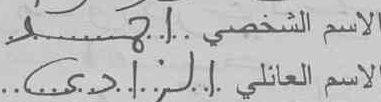 الاسم الشخصي ..احمد
الاسم العائلي .الزادي..